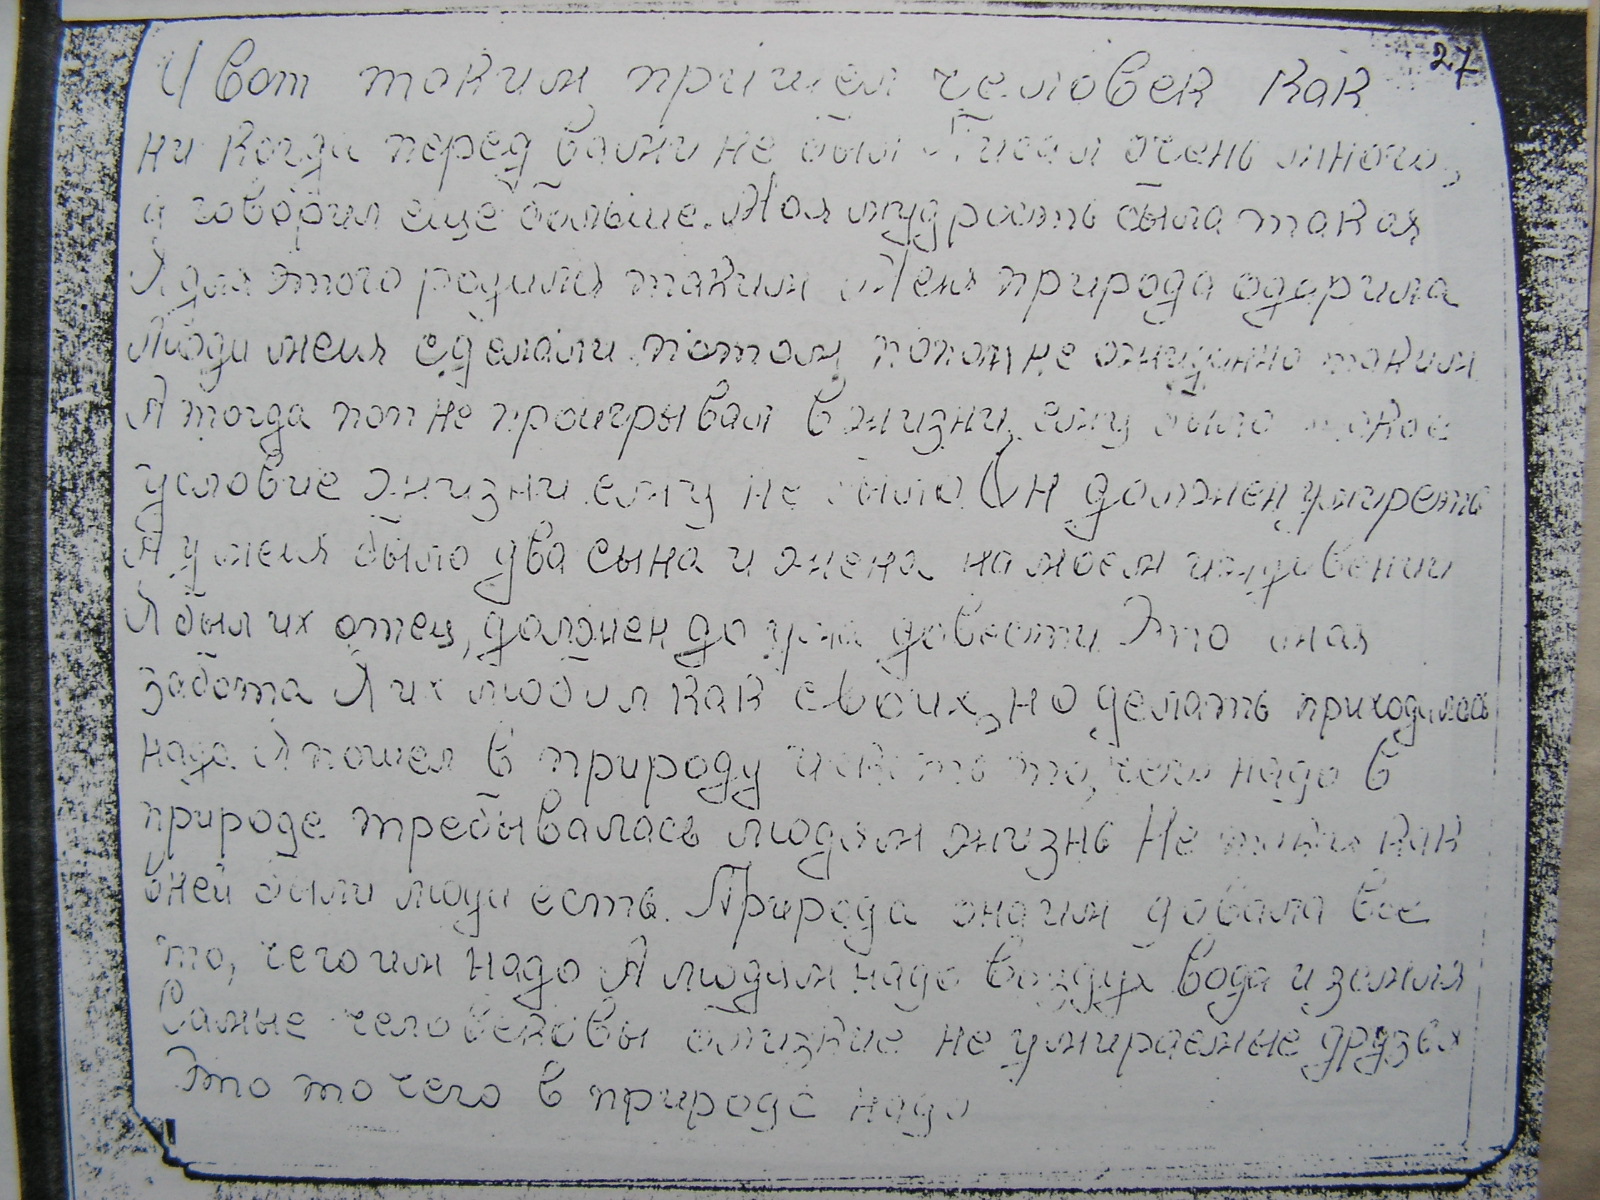 27
И вот таким пришел человек как
ни когда перед вами не был Писал очень много,
а говорил еще больше. Моя мудрость была такая
Я для этого родился таким Меня природа одарила
Люди меня сделали потом попом не ожиданно таким
А тогда поп не проигрывал в жизни, ему было такое
условие жизни ему не было Он должен умиреть
А у меня было два сына и жена на моем иждивении
Я был их отец, должен до ума довести Это моя
забота Я их любил как своих, но делать приходилось
надо Я пошел в природу искать то, чего надо в
природе требывалась людям жизнь Не как
в ней были люди есть. Природа она им довала все
то, чего им надо А людям надо воздух вода и земля
Самые человековы близкие не умираемые друзья
Это то чего в природе надо